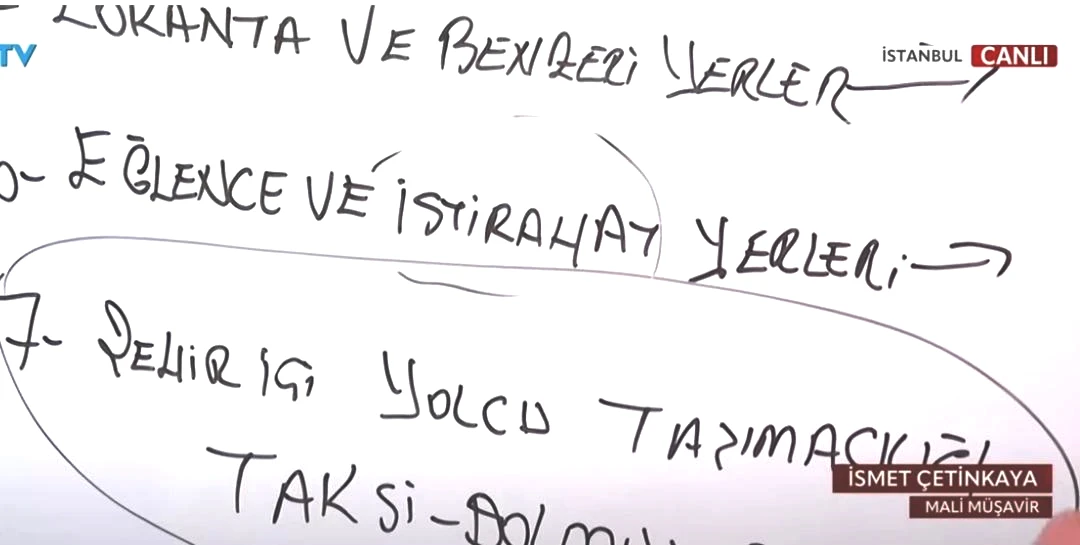 LOKANTA VE BENZERİ YERLER
TV
İSTANBUL CANLI
EĞLENCE VE İSTİRAHAT YERLERİ
7- ŞEHİR İÇİ YOLCU TAŞIMACILIĞI
TAKSİ-DOLMUŞ
İSMET ÇETİNKAYA
MALİ MÜŞAVİR